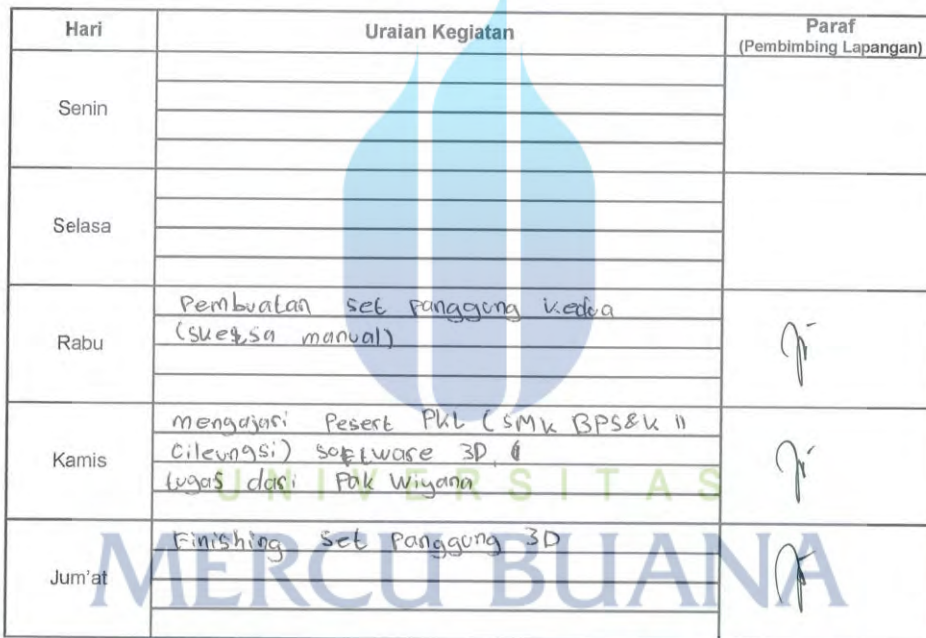 Hari Uraian Kegiatan Paraf
(Pembimbing Lapangan)
Senin
Selasa
Rabu
Pembuatan set panggung kedua
(skeqsa manual)
Kamis
mengajari Pesert PKL (SMK BPS&K II
Cileungsi) software 3D
tugas dari Pak Wiyana
UNIVERSITAS
Jum'at
Finishing set Panggung 3D
MERCU BUANA